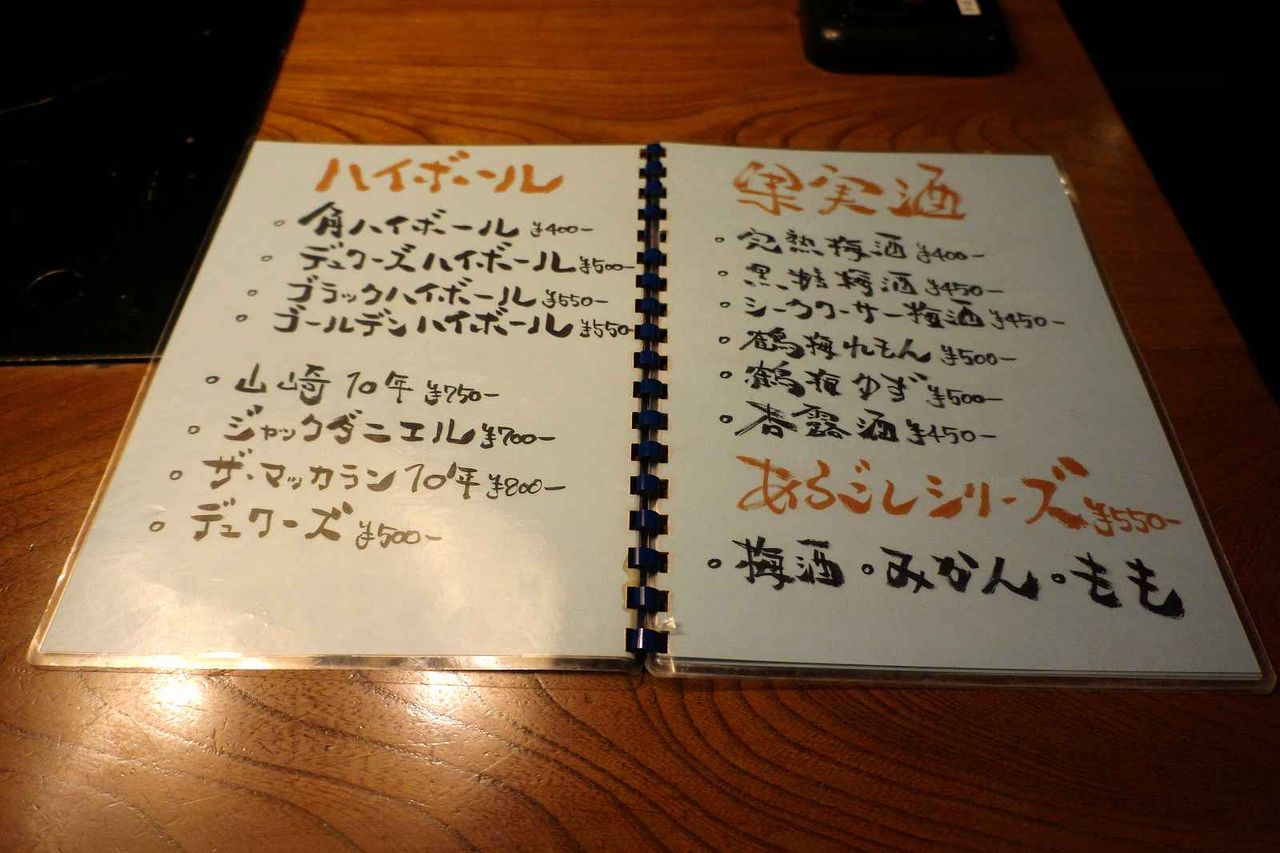 ハイボール
。角ハイボール ¥400-
。デュワーズハイボール ¥500-
。ブラックハイボール ¥550-
。ゴールデンハイボール ¥550-
。山崎10年 ¥750-
。ジャックダニエル ¥700-
。ザ・マッカラン10年 ¥800-
。デュワーズ ¥500-
果実酒
。完熟梅酒 ¥400-
。黒糖梅酒 ¥450-
。シークワーサー梅酒 ¥450-
。鶴梅れもん ¥500-
。鶴梅ゆず ¥500-
。杏露酒 ¥450-
あらごしシリーズ ¥550-
。梅酒。みかん。もも